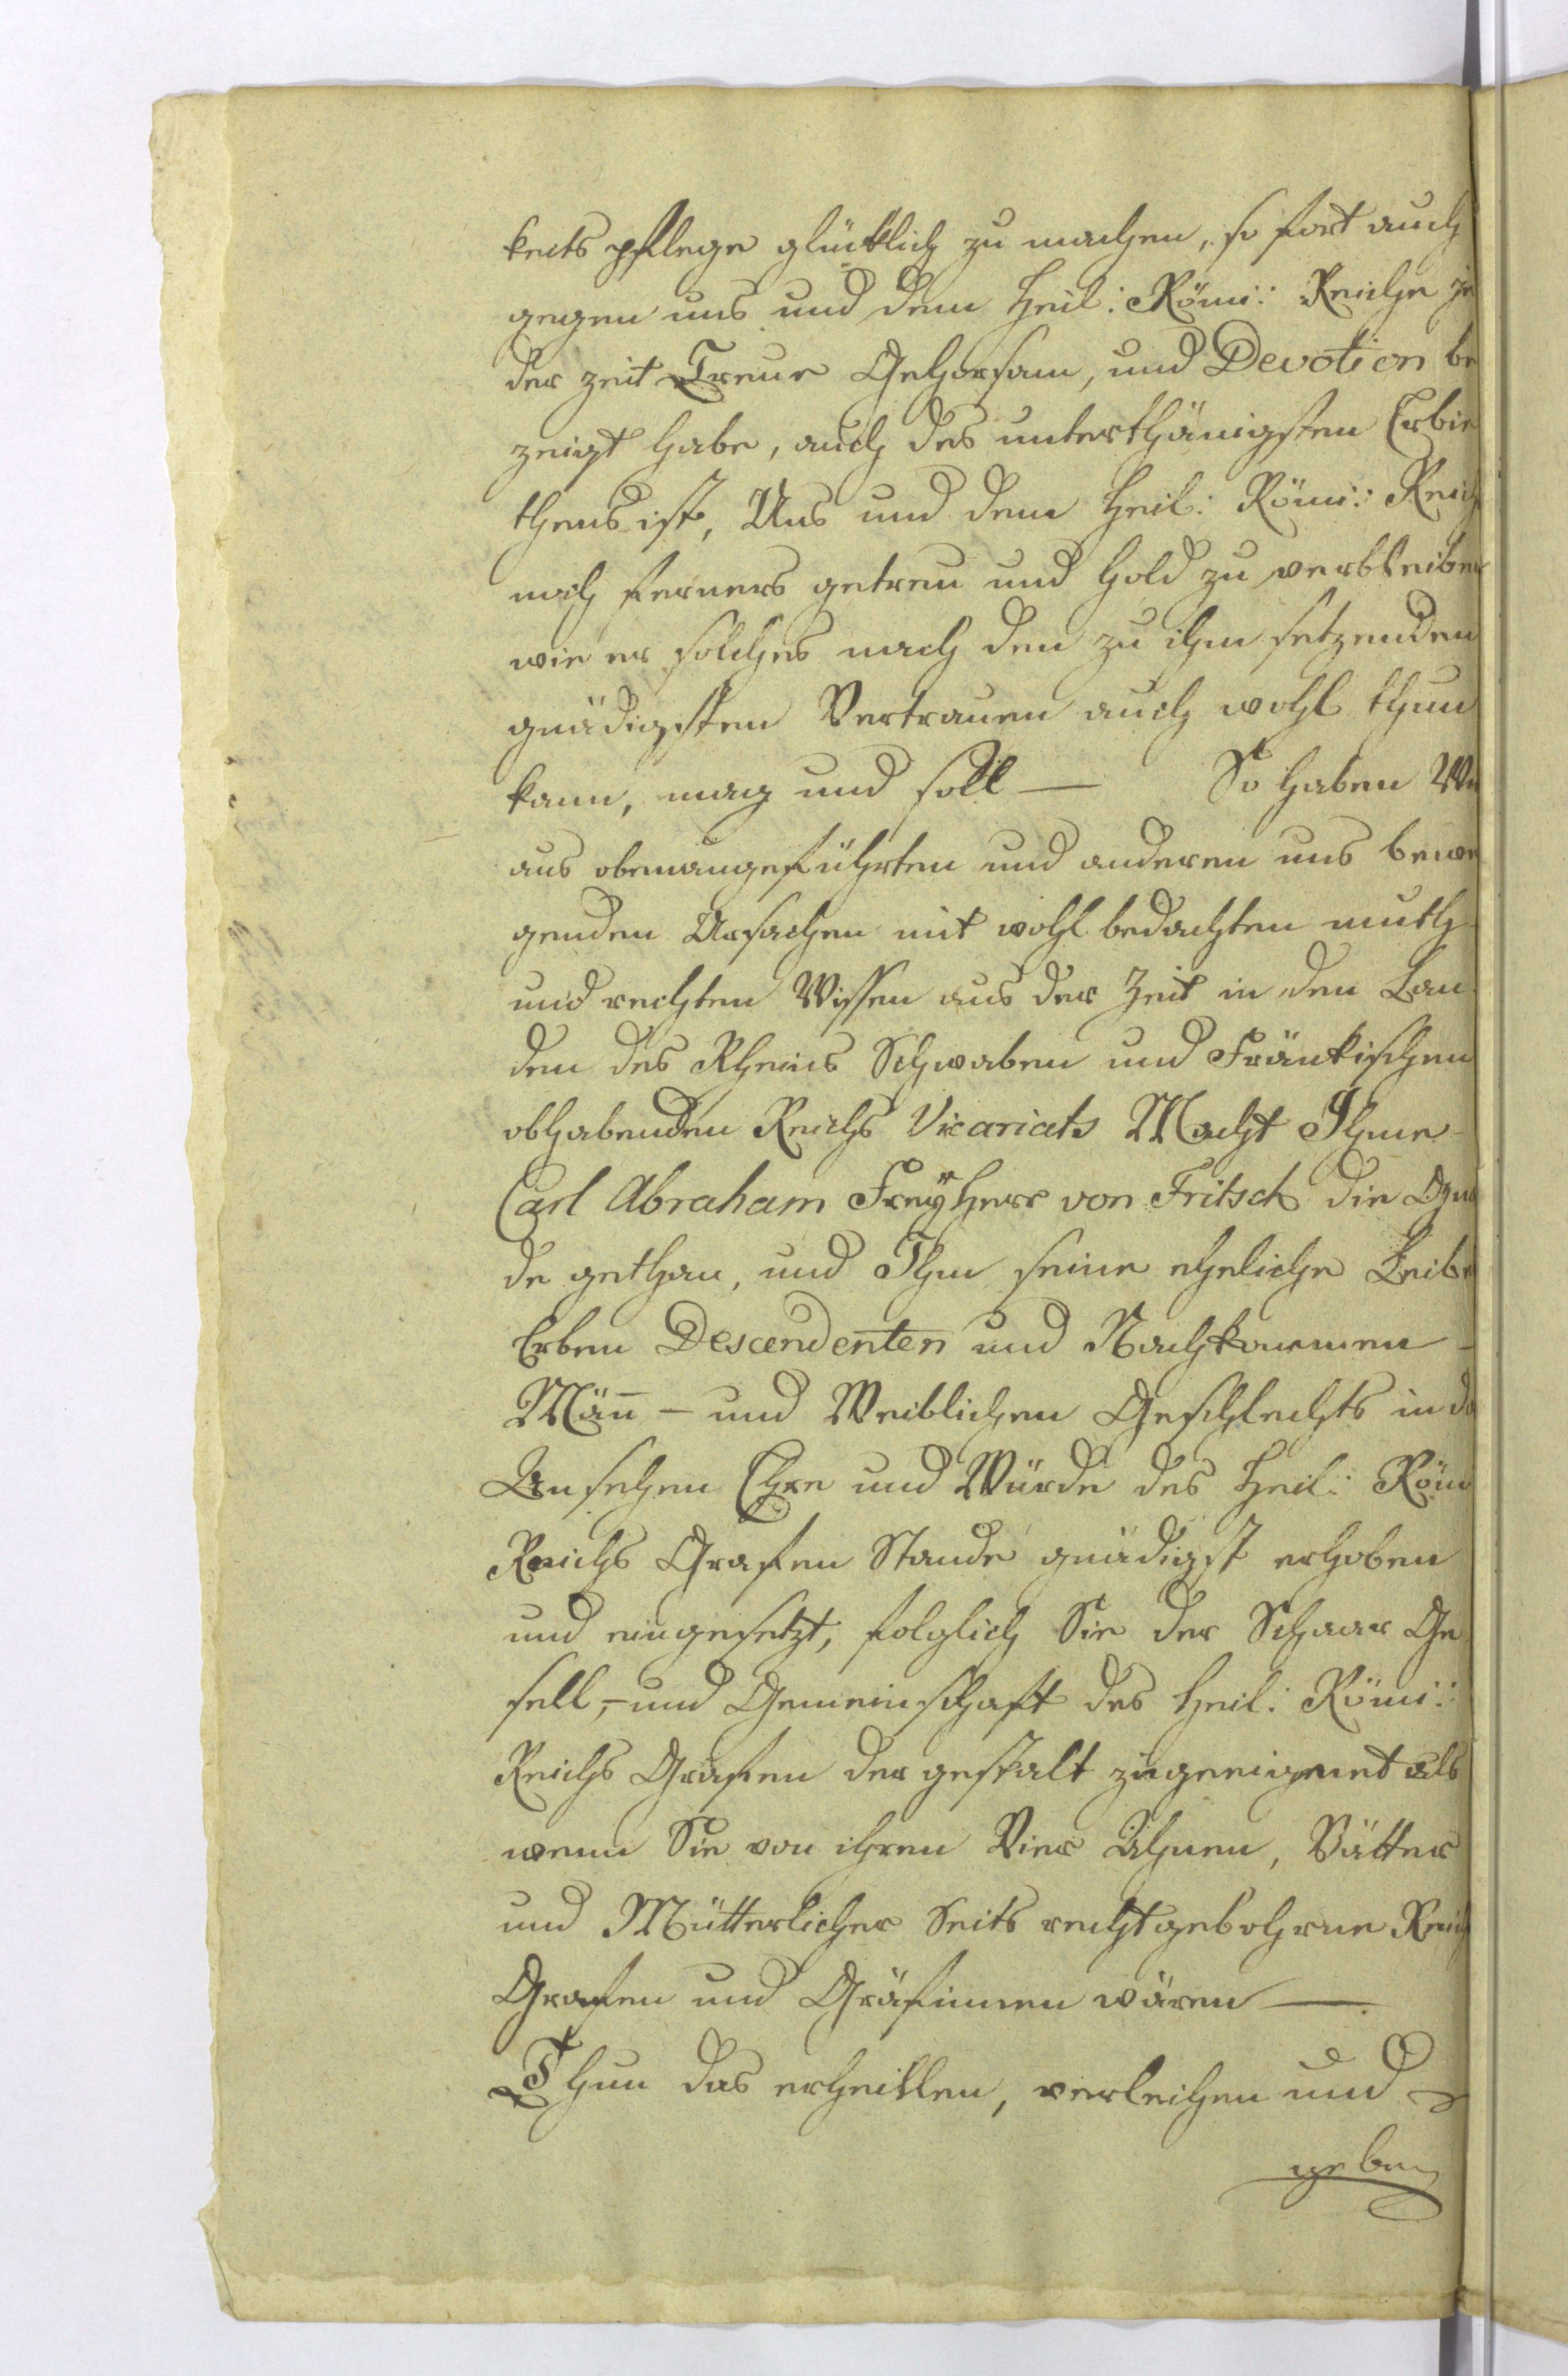 keits pflege glücklich zu machen, so fort auch
gegen uns und dem Heil: Römi: Reiche je
der zeit Treue Gehorsam, und Devotion be
zeigt habe, auch des unterthänigsten Erbie
thens ist, Uns und dem Heil: Römi: Reich
noch ferners getreu und hold zu verbleiben
wie er solches nach den zu ihm setzenden
gnädigsten Vertrauen auch wohl thun
kann, mag und soll — So haben Wir
aus obenangeführten und anderen uns bewe
genden Ursachen mit wohl bedachten muth
und rechten Wissen aus der Zeit in den Lan
den des Rheins Schwaben und Fränkischen
obhabenden Reichs Vicariats Macht Ihme
Carl Abraham Freyherr von Fritsch die Gna
de gethan, und Ihm seine eheliche Leibs
Erben Descendenten und Nachkommen
Mañ - und Weiblichen Geschlechts in da
Ansehen Ehre und Würde des Heil: Röm
Reichs Grafen Stande gnädigst erhoben
und eingesetzt, folglich Sie der Schaar Ge
sell, - und Gemeinschaft des Heil: Römi:
Reichs Grafen der gestalt zugeeignet als
wenn Sie von ihren Vier Ahnen, Vätter
und Mütterlicher Seits rechtgebohrne Reich
Grafen und Gräfinnen wären —
Thun das ertheillen, verleihen und
geben